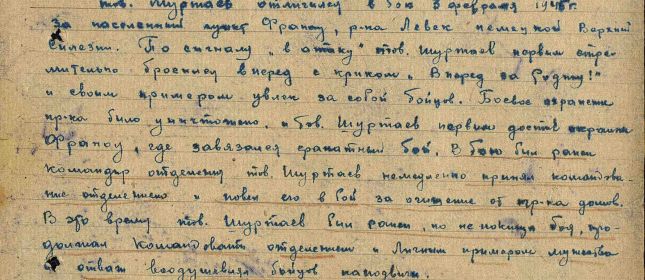 тов. Шуртаев отличился в бою 3 февраля 1945 г.
за населенный пункт Франоу, р-на Левек немецкой Верхней
Силезии. По сигналу „в атаку" тов. Шуртаев первым стре-
мительно бросился вперед с криком „Вперед за Родину!"
и своим примером увлек за собой бойцов. Боевое охранение
пр-ка было уничтожено. и тов. Шуртаев первым достиг окраины
Франоу, где завязался гранатный бой. В бою был ранен
командир отделения тов. Шуртаев немедленно принял командова-
ние отделением и повел его в бой за очищение от пр-ка домов.
В это время тов. Шуртаев был ранен, но не покинув боя, про-
должал командовать отделением и личным примером мужества
и отваги воодушевлял бойцов на подвиги.